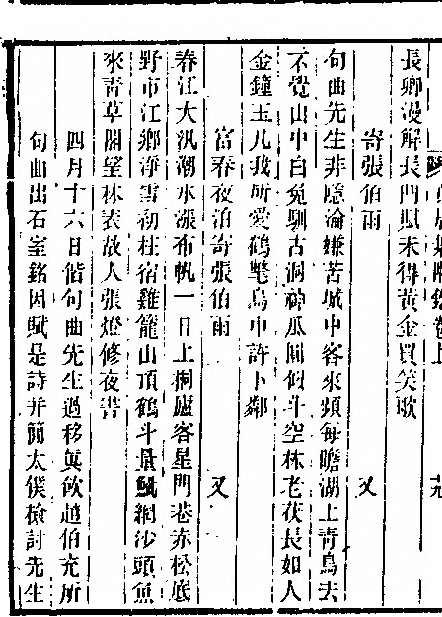 長卿漫解長門賦未得黃金買笑歌
寄張伯雨 又
句曲先生非隱淪嫌苦城中客來頻每瞻湖上青鳥去
不覺山中白兔馴古洞神瓜圓似斗空林老茯長如人
金鐘玉几我所愛鶴氅烏巾許卜鄰
富春夜泊寄張伯雨 又
春江大汛潮水漲布帆一日上桐廬客星門巷赤松底
野市江鄉淨雪初柱宿雞籠山頂鶴斗量網沙頭魚
來青草閣望林表故人張燈修夜書
四月十六日偕句曲先生過移眞飲趙伯充所
句曲出石室銘因賦是詩并簡太僕檢討先生